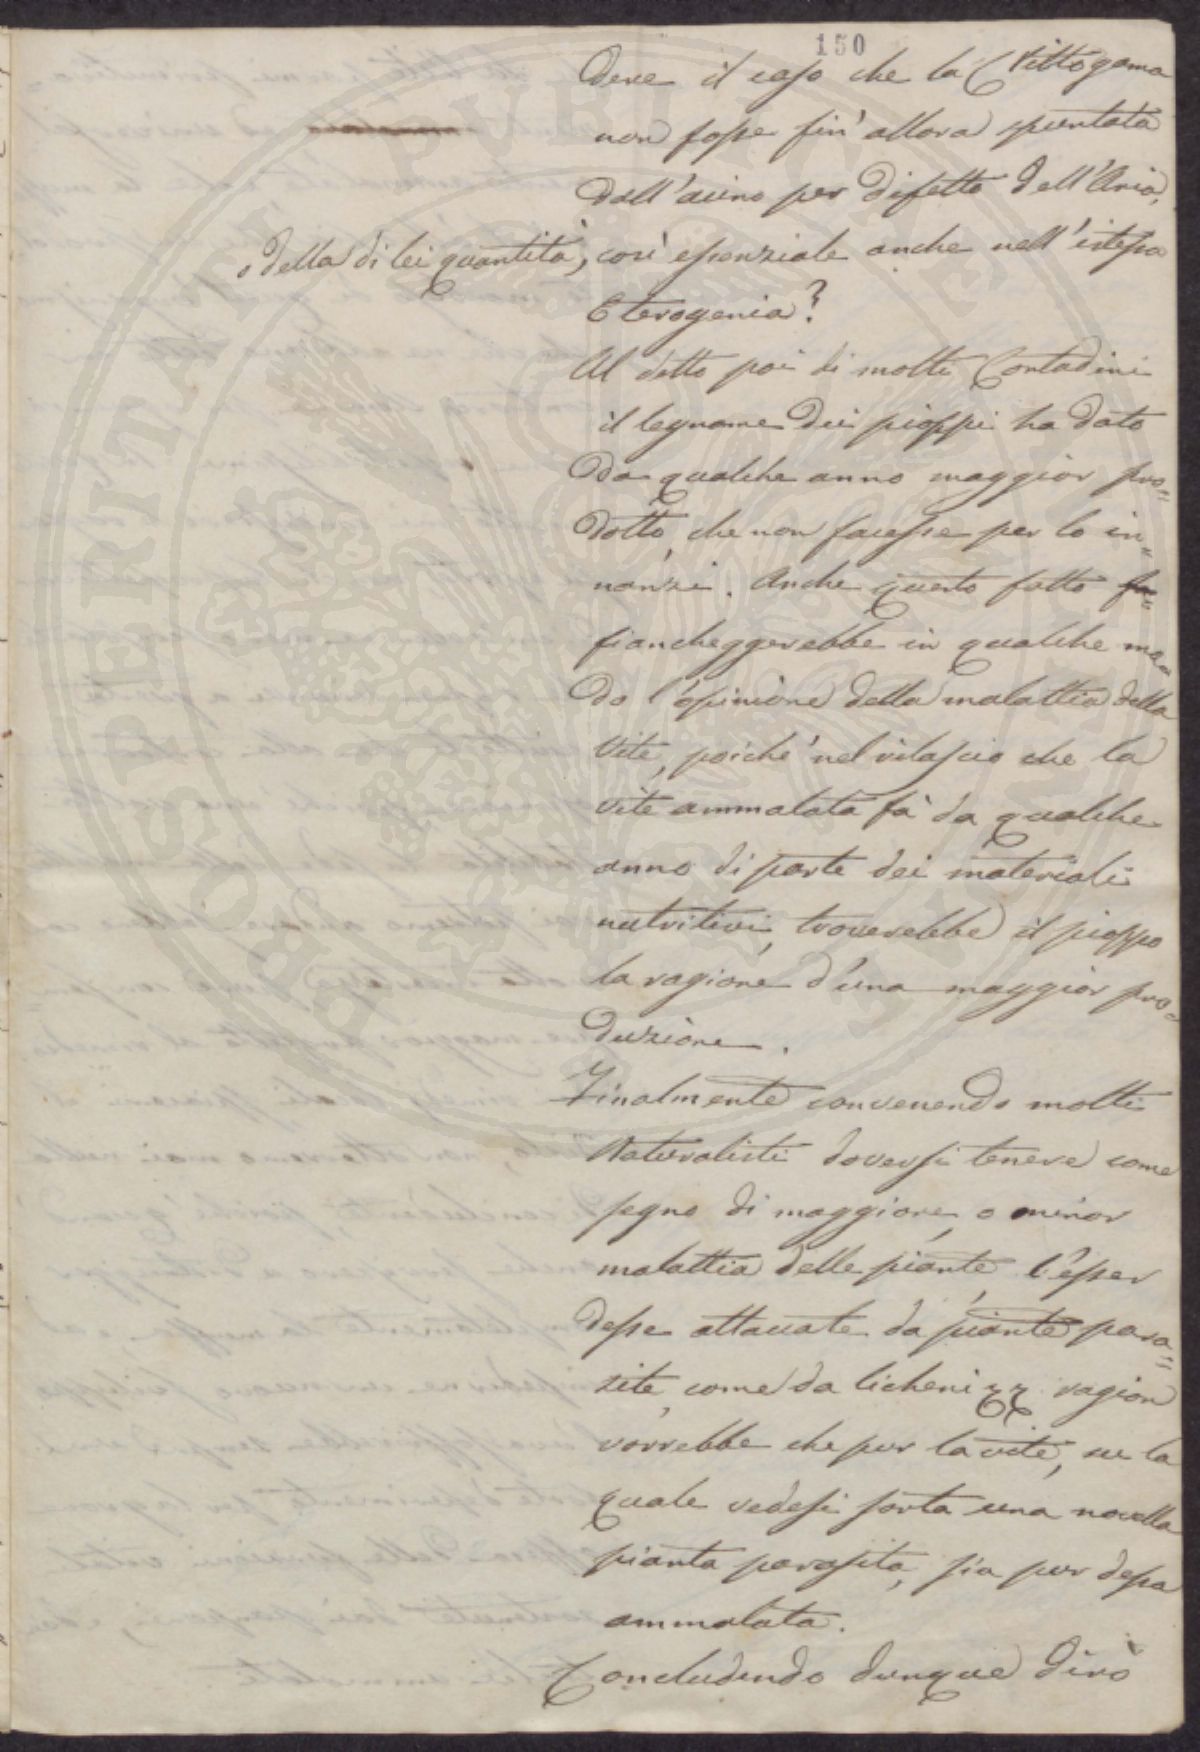 150
dere il caso che la Crittogama
non fosse fin' allora spuntata
dall'acino per difetto dell'Aria,
o della di lei quantità, così essenziale anche nell'istessa
Eterogenia?
Al detto poi di molti Contadini
il legname dei pioppi ha dato
da qualche anno maggior pro=
dotto, che non facesse per lo in=
nanzi. Anche questo fatto
fiancheggerebbe in qualche mo=
do l'opinione della malattia della
Vite, poiché nel rilascio che la
vite ammalata fà da qualche
anno di parte dei materiali
nutritivi, troverebbe il pioppo
la ragione d'una maggior pro=
duzione.
Finalmente convenendo molti
Naturalisti doversi tenere come
segno di maggiore, o minor
malattia delle piante, l'esser
desse attaccate da piante paras=
site, come da licheni, ragion
vorrebbe che pur la vite, su la
quale vedesi sorta una novella
pianta parasita, sia pur dessa
ammalata.
Concludendo dunque dirò